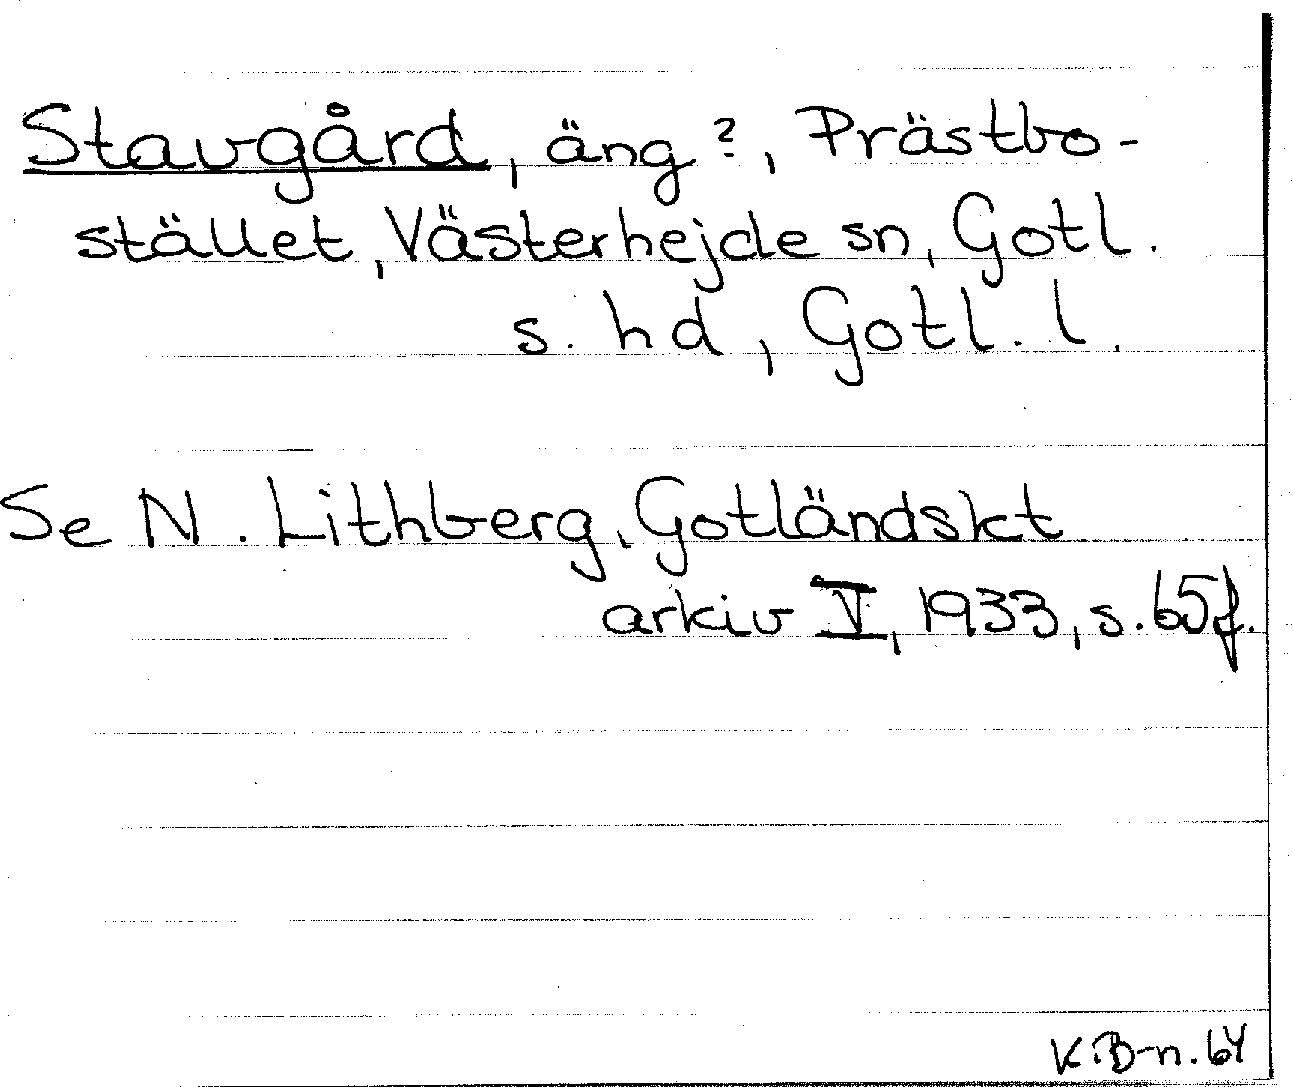 Stavgård, äng?, Prästbo-
stället, Västerhejde sn, Gotl.
s. hd, Gotl. l.
Se N. Lithberg, Gotländskt
arkiv V, 1933, s. 65 f.
K.B-n. 64